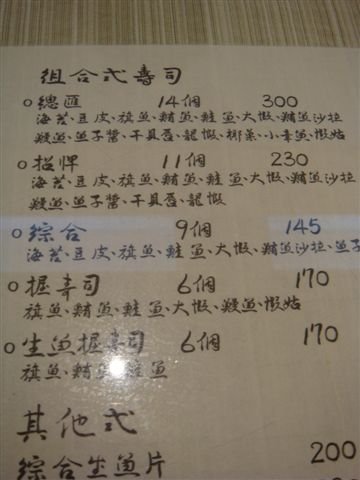 組合式壽司
總匯 14個 300
海苔、豆皮、旗魚、鮪魚、鮭魚、大蝦、鮪魚沙拉
鰻魚、魚子醬、干貝唇、龍蝦、椰菜、小章魚、蝦姑
招牌 11個 230
海苔、豆皮、旗魚、鮪魚、鮭魚、大蝦、鮪魚沙拉
鰻魚、魚子醬、干貝唇、龍蝦
綜合 9個 145
海苔、豆皮、旗魚、鮭魚、大蝦、鮪魚沙拉、魚子
握壽司 6個 170
旗魚、鮪魚、鮭魚、大蝦、鰻魚、蝦姑
生魚握壽司 6個 170
旗魚、鮪魚、鮭魚
其他式
綜合生魚片 200